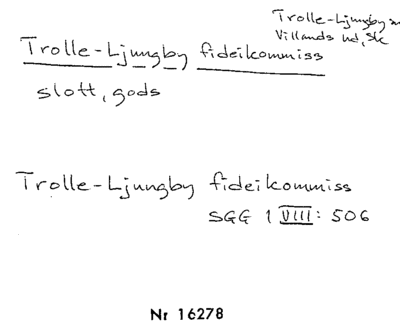 Trolle-Ljungby
Villands hd, Sk
Trolle-Ljungby fideikommiss
slott, gods
Trolle-Ljungby fideikommiss
SGG 1 VIII: 506
Nr 16278